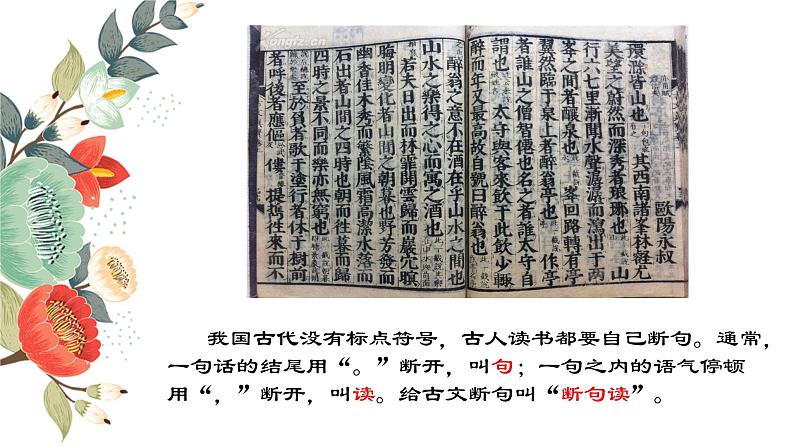 歐陽永叔
環滁皆山也 其西南諸峯林壑尤
美望之蔚然而深秀者琅琊也 山
行六七里漸聞水聲潺潺而瀉出于兩
峯之間者釀泉也 峯回路轉有亭
翼然臨于泉上者醉翁亭也 作亭
者誰山之僧智僊也名之者誰太守自
謂也 太守與客來飲于此飲少輒
醉而年又最高故自號曰醉翁也
醉翁之意不在酒在乎山水之
山水之樂得之心而寓之酒也
若夫日出而林霏開雲歸而巖穴暝
晦明變化者山間之朝暮也 野芳發而
幽香佳木秀而繁陰風霜高潔水落而
石出者山間之四時也 朝而往暮而歸
四時之景不同而樂亦無窮也
至於負者歌于塗行者休于樹前
者呼後者應傴僂提攜往來而不
我国古代没有标点符号，古人读书都要自己断句。通常，
一句话的结尾用“。”断开，叫句；一句之内的语气停顿
用“，”断开，叫读。给古文断句叫“断句读”。